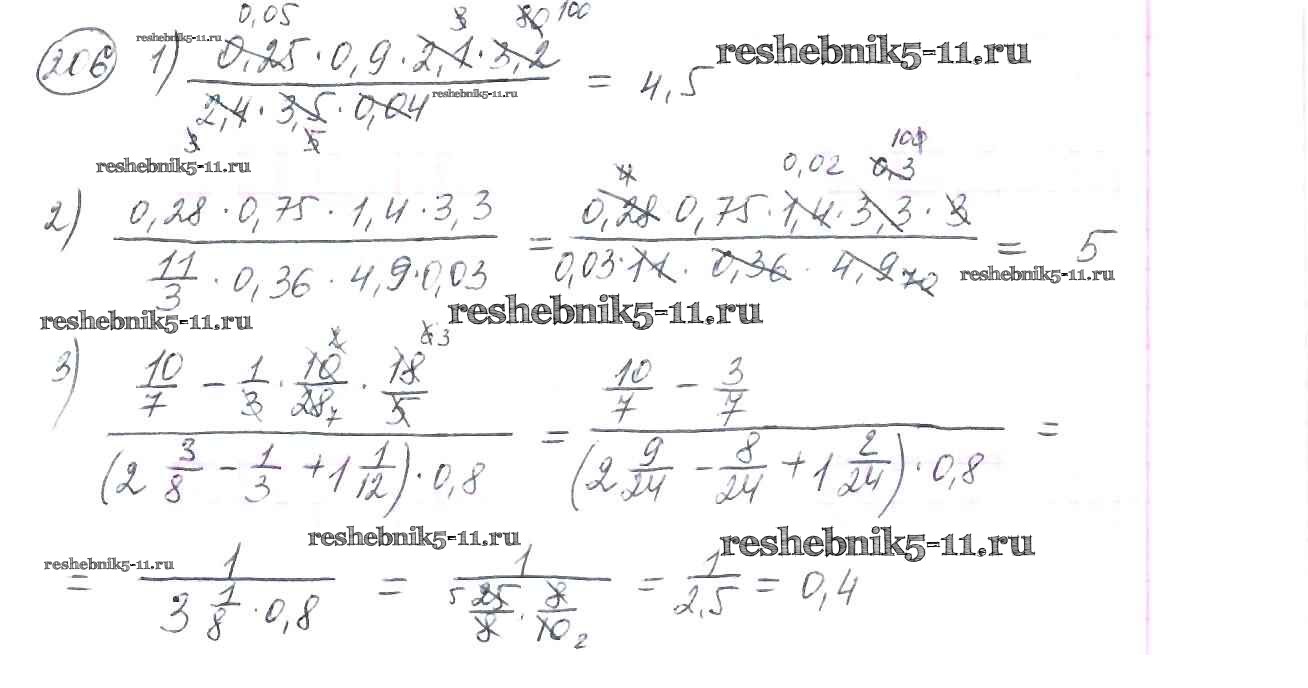 206 1) (0,25 · 0,9 · 2,1 · 3,2) / (2,4 · 3,5 · 0,04) = 4,5
0,05 3 80 100
3 5
reshebnik5-11.ru
reshebnik5-11.ru
reshebnik5-11.ru
reshebnik5-11.ru
2) (0,28 · 0,75 · 1,4 · 3,3) / (11/3 · 0,36 · 4,9 · 0,03) = (0,28 · 0,75 · 1,4 · 3,3 · 3) / (0,03 · 11 · 0,36 · 4,9) = 5
4 0,02 0,3
reshebnik5-11.ru
reshebnik5-11.ru
reshebnik5-11.ru
3) (10/7 − 1/3 · 10/28 · 18/5) / ((2 3/8 − 1/3 + 1 1/12) · 0,8) = (10/7 − 3/7) / ((2 9/24 − 8/24 + 1 2/24) · 0,8) =
2 7 6 3
reshebnik5-11.ru
reshebnik5-11.ru
reshebnik5-11.ru
= 1 / (3 1/8 · 0,8) = 1 / (25/8 · 8/10) = 1/2,5 = 0,4
5 2